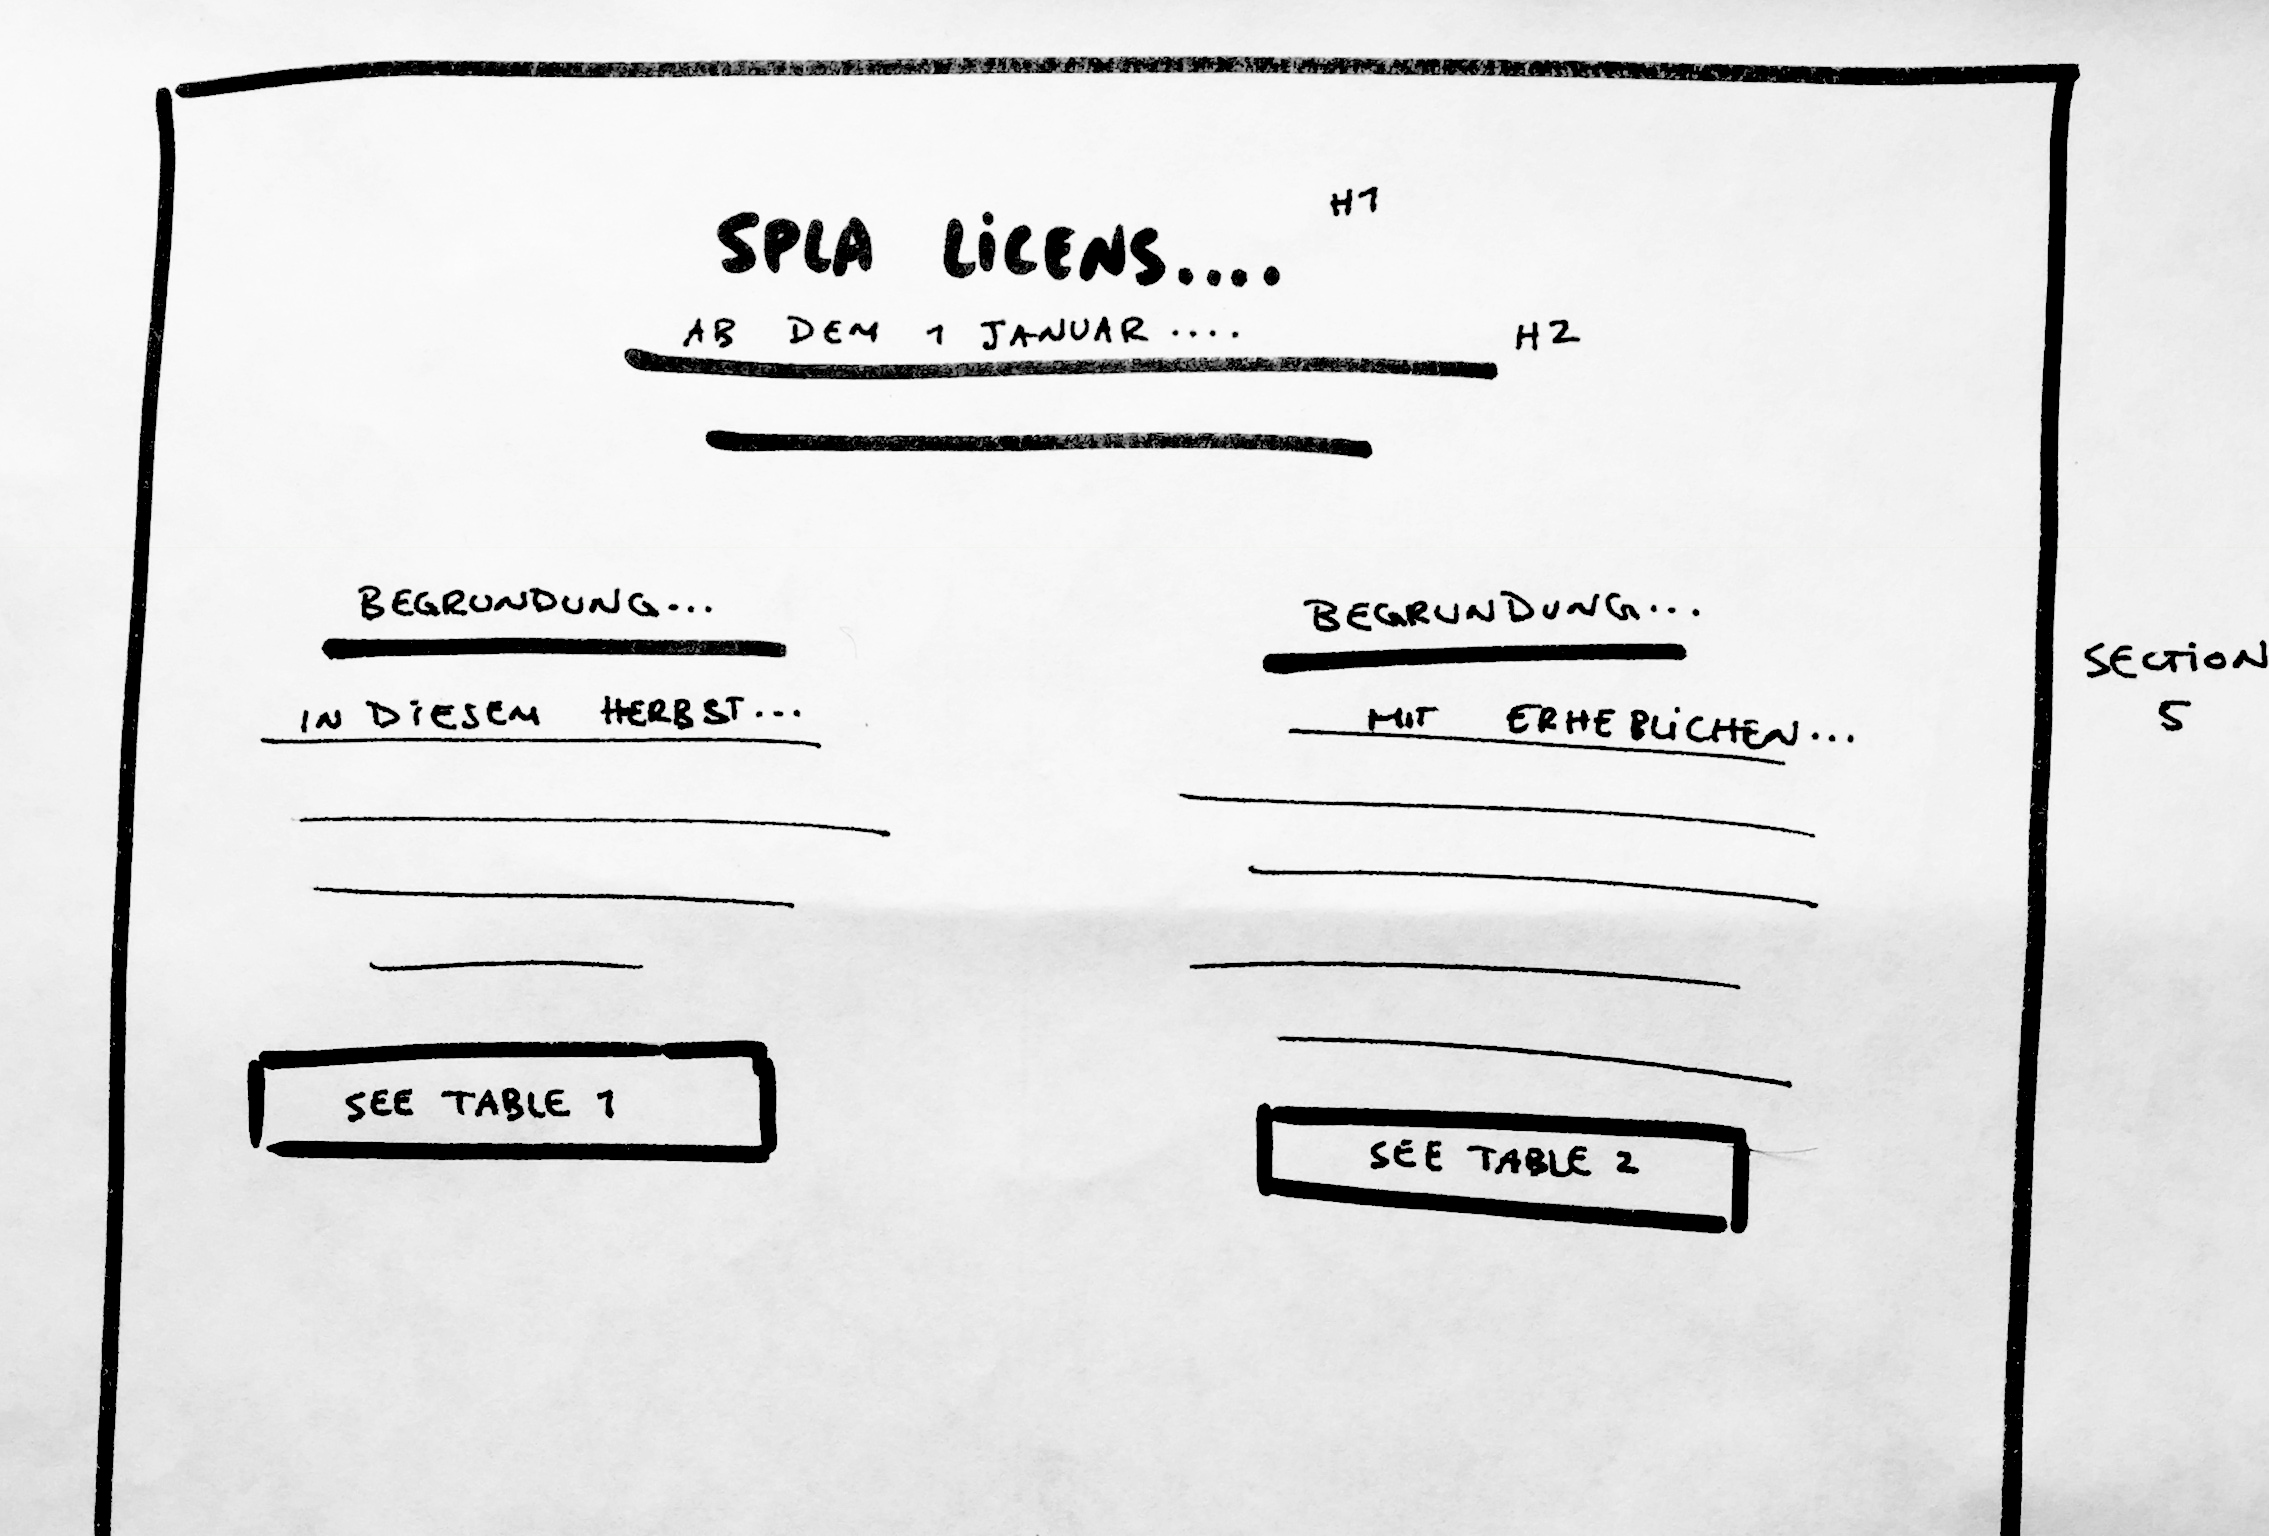 H1
SPLA LiCENS....
AB DEM 1 JANUAR ....
H2
BEGRUNDUNG...
IN DiESEM HERBST...
SEE TABLE 1
BEGRUNDUNG...
MIT ERHEBLiCHEN...
SEE TABLE 2
SECTiON
5